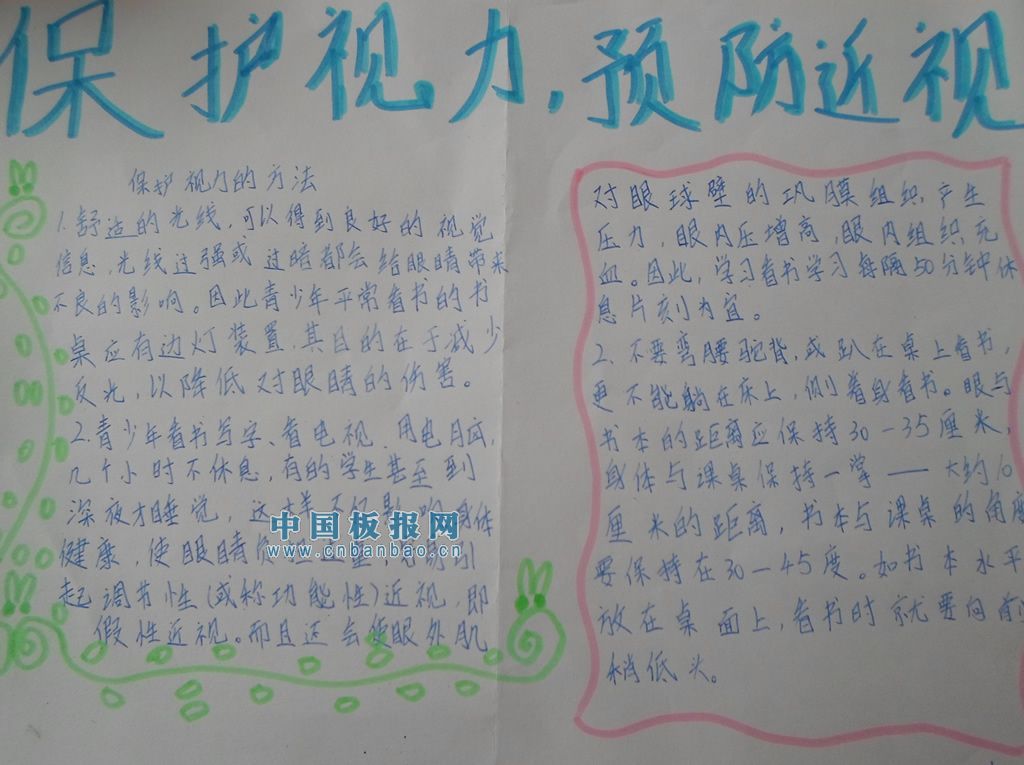 保护视力,预防近视
保护视力的方法
1.舒适的光线,可以得到良好的视觉
信息,光线过强或过暗都会给眼睛带来
不良的影响。因此青少年平常看书的书
桌应有边灯装置,其目的在于减少
反光,以降低对眼睛的伤害。
2.青少年看书写字、看电视、用电脑,
几个小时不休息,有的学生甚至到
深夜才睡觉,这样不仅影响身体
健康,使眼睛负担过重,
起调节性(或称功能性)近视,即
假性近视。而且还会使眼外肌
对眼球壁的巩膜组织产生
压力,眼内压增高,眼内组织充
血。因此,学习看书学习每隔50分钟休
息片刻为宜。
2.不要弯腰驼背,或趴在桌上看书,
更不能躺在床上,侧着身看书。眼与
书本的距离应保持30-35厘米,
身体与课桌保持一掌——大约10
厘米的距离,书本与课桌的角度
要保持在30-45度。如书本水平
放在桌面上,看书时就要向前
稍低头。
中国板报网
www.cnbanbao.cn